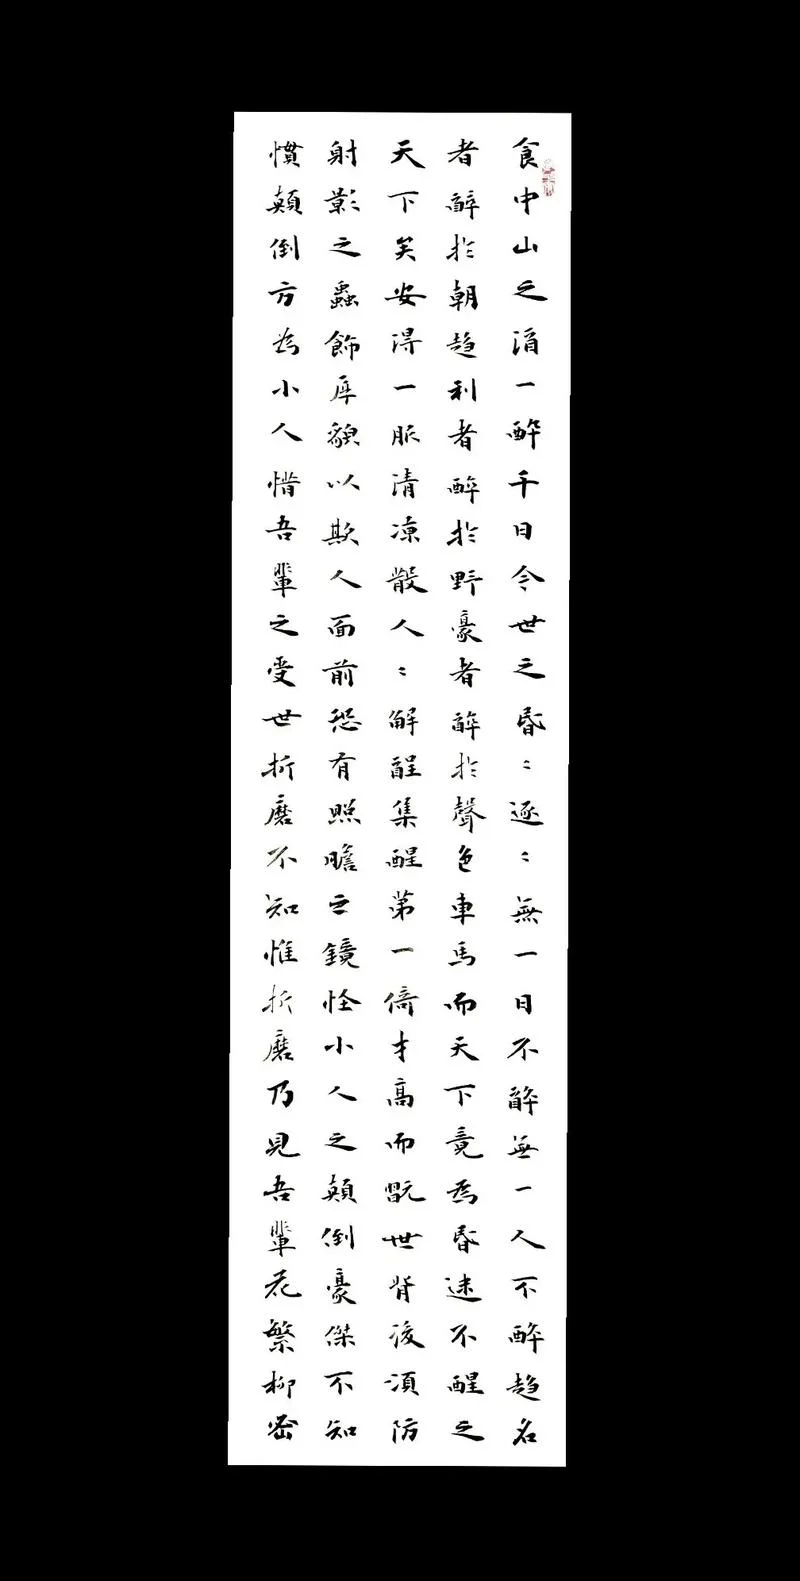 食中山之酒一醉千日今世之昏〻逐〻無一日不醉無一人不醉趍名
者醉於朝趍利者醉於野豪者醉於聲色車馬而天下竟為昏迷不醒之
天下矣安得一脈清凉散人〻解酲集醒第一倚才高而翫世背後須防
射影之蟲飾厚貌以欺人面前恐有照瞻之鏡怪小人之顛倒豪傑不知
慣顛倒方為小人惜吾輩之受世折磨不知惟折磨乃見吾輩花繁柳密